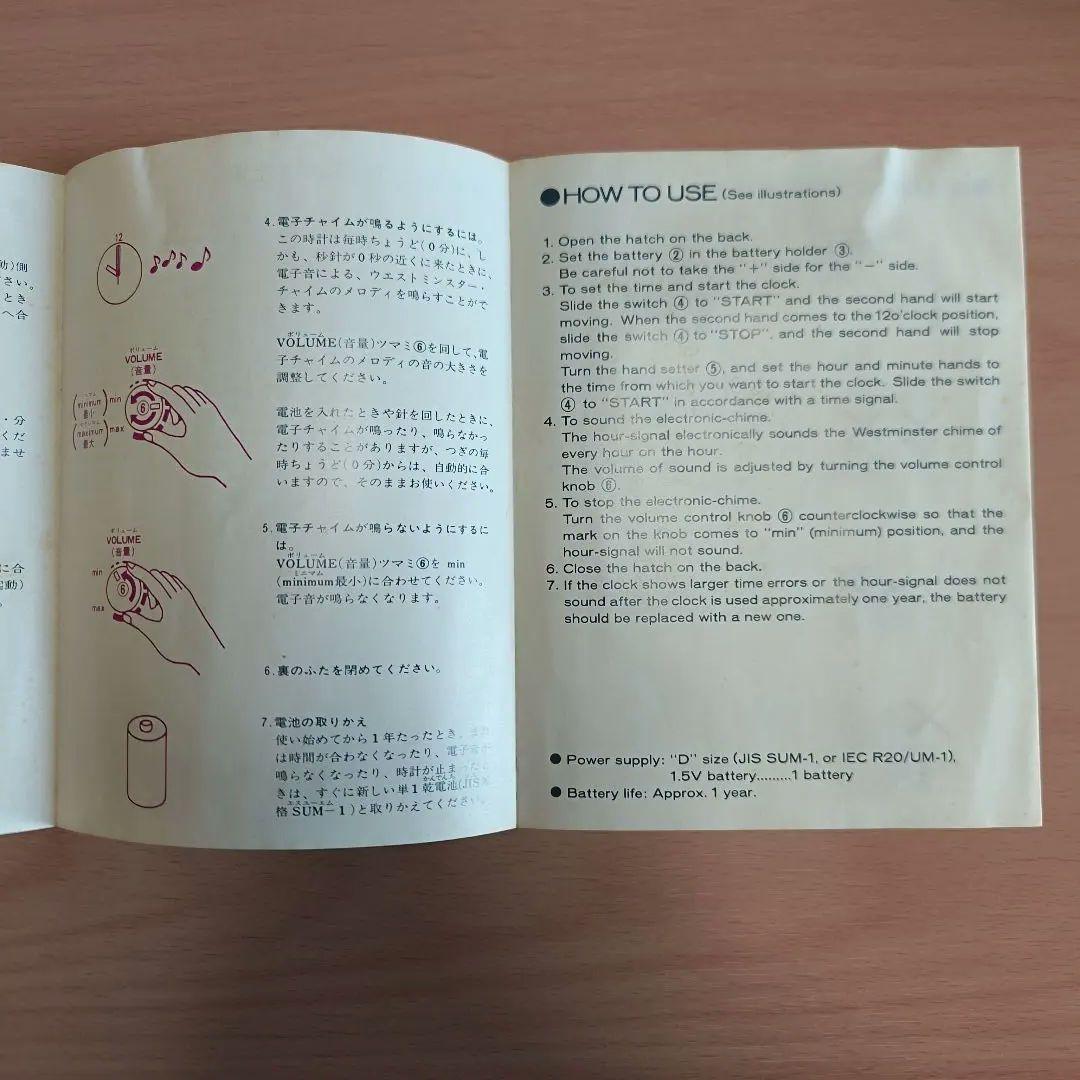 動)側
さい。
とき
へ合
・分
くだ
ませ
に合
起動)
。
12
ボリューム
VOLUME
(音量)
ミニマム
minimum
最小
min
マキシマム
maximum
最大
max
6
ボリューム
VOLUME
(音量)
min
max
6
4.電子チャイムが鳴るようにするには。
この時計は毎時ちょうど(0分)に、し
かも、秒針が0秒の近くに来たときに、
電子音による、ウエストミンスター・
チャイムのメロディを鳴らすことがで
きます。
ボリューム
VOLUME(音量)ツマミ⑥を回して、電
子チャイムのメロディの音の大きさを
調整してください。
電池を入れたときや針を回したときに、
電子チャイムが鳴ったり、鳴らなかっ
たりすることがありますが、つぎの毎
時ちょうど(0分)からは、自動的に合
いますので、そのままお使いください。
5.電子チャイムが鳴らないようにするに
は。
ボリューム
VOLUME(音量)ツマミ⑥を min
ミニマム
(minimum最小)に合わせてください。
電子音が鳴らなくなります。
6.裏のふたを閉めてください。
7.電池の取りかえ
使い始めてから1年たったとき、また
は時間が合わなくなったり、電子音が
鳴らなくなったり、時計が止まった
かんでんち
きは、すぐに新しい単1乾電池(JIS
エスユーエム
格SUM-1)と取りかえてくださ
●HOW TO USE (See illustrations)
1. Open the hatch on the back.
2. Set the battery ② in the battery holder ③.
Be careful not to take the "+" side for the "−" side.
3. To set the time and start the clock.
Slide the switch ④ to "START" and the second hand will start
moving. When the second hand comes to the 12o'clock position,
slide the switch ④ to "STOP", and the second hand will stop
moving.
Turn the hand setter ⑤, and set the hour and minute hands to
the time from which you want to start the clock. Slide the switch
④ to "START" in accordance with a time signal.
4. To sound the electronic-chime.
The hour-signal electronically sounds the Westminster chime of
every hour on the hour.
The volume of sound is adjusted by turning the volume control
knob ⑥.
5. To stop the electronic-chime.
Turn the volume control knob ⑥ counterclockwise so that the
mark on the knob comes to "min" (minimum) position, and the
hour-signal will not sound.
6. Close the hatch on the back.
7. If the clock shows larger time errors or the hour-signal does not
sound after the clock is used approximately one year, the battery
should be replaced with a new one.
● Power supply: "D" size (JIS SUM-1, or IEC R20/UM-1),
1.5V battery.........1 battery
● Battery life: Approx. 1 year.